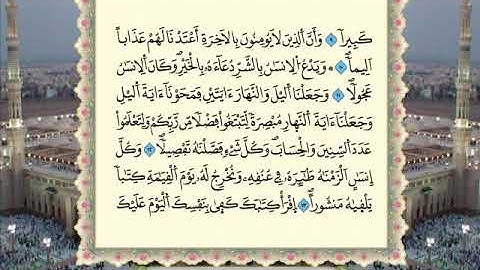 كَبِيراٗۖ ٩ وَأَنَّ اَ۬لذِينَ لَا يُومِنُونَ بِالَاخِرَةِ أَعْتَدْنَا لَهُمْ عَذَاباً
اَلِيماٗۖ ١٠ وَيَدْعُ اُ۬لِانسَٰنُ بِالشَّرِّ دُعَآءَهُۥ بِالْخَيْرِۖ وَكَانَ اَ۬لِانسَٰنُ
عَجُولاٗۖ ١١ وَجَعَلْنَا اَ۬ليْلَ وَالنَّهَارَ ءَايَتَيْنِۖ فَمَحَوْنَآ ءَايَةَ اَ۬ليْلِ
وَجَعَلْنَآ ءَايَةَ اَ۬لنَّهارِ مُبْصِرَةٗ لِّتَبْتَغُواْ فَضْلاٗ مِّن رَّبِّكُمْ وَلِتَعْلَمُواْ
عَدَدَ اَ۬لسِّنِينَ وَالْحِسَابَۖ وَكُلَّ شَےْءٖ فَصَّلْنَٰهُ تَفْصِيلاٗۖ ١٢ وَكُلَّ
إِنسَٰنٍ اَلْزَمْنَٰهُ طَٰٓئِرَهُۥ فِے عُنُقِهِۦ وَنُخْرِجُ لَهُۥ يَوْمَ اَ۬لْقِيَٰمَةِ كِتَٰباٗ
يَلْقَيٰهُ مَنشُوراًۖ ١٣ اِ۪قْرَأْ كِتَٰبَكَ كَف۪يٰ بِنَفْسِكَ اَ۬لْيَوْمَ عَلَيْكَ